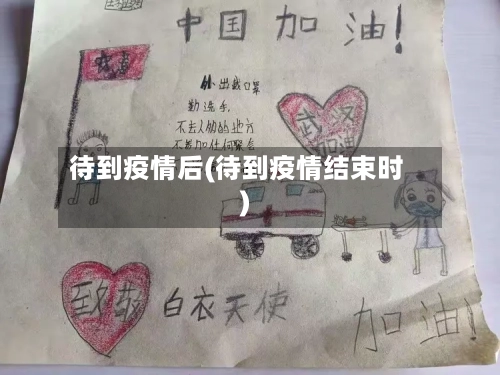 中国加油!
战毒
外出戴口罩
勤洗手,
不去人多的地方
不参加任何聚会
武汉
加油
待到疫情后(待到疫情结束时
)
致敬 白衣天使
加油!